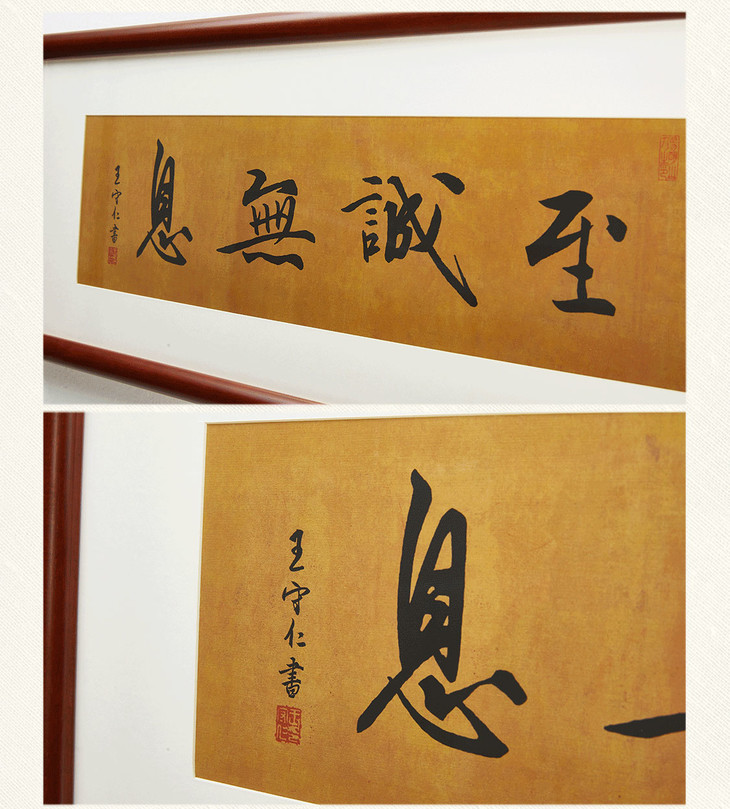 至誠無息
王守仁書
息
王守仁書